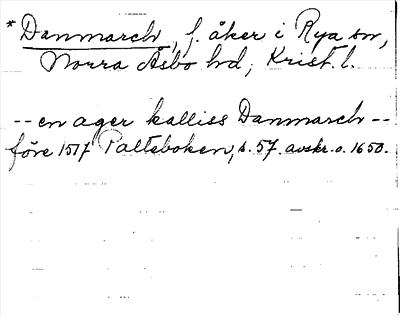 *Danmarch, f. åker i Rya sn,
Norra Åsbo hd, Krist. l.
-- en ager kalliss Danmarch --
före 1517 Palteboken, s. 57. avskr. o. 1650.